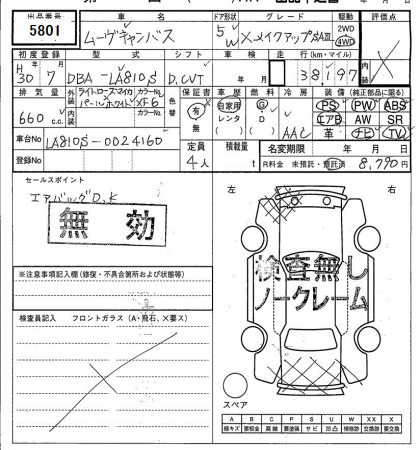 出品番号 車名 ドア形状 グレード 駆動 評価点
5801 ムーヴキャンバス 5 W XメイクアップSAⅢ 2WD 4WD
初度登録 型式 シフト 車検 走行(km・マイル)
H 30 年 7 月 DBA-LA810S D.CVT 年 月 38,197
排気量 外装 ライトローズマイカ カラーNo. 色替 保証書 車歴 燃料 冷房 装備(純正部品に限る)
660 c.c. 内装 パールホワイト XF6 カラーNo. 有 無 自家用 レンタ G D AAC PS PW ABS
エアB AW SR
革 ナビ TV
車台No LA810S-0024160 定員 4人 積載量 t 名変期限 年 月 日
登録No R料金 未預託・預託済 8,790円
セールスポイント
エアバッグO.K
無効
左 右
検査無し
ノークレーム
※注意事項記入欄(修復・不具合箇所および状態等)
検査員記入 フロントガラス(A・飛石、×要ス)
スペア
A B C P S U W X XX
線キズ 要板金 腐蝕 要塗装 サビ 凹凸 補修跡 交換跡 要交換